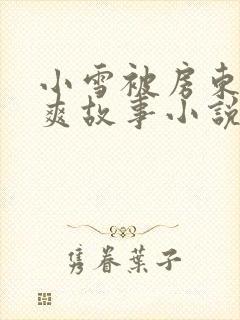 小雪被房东
爽故事小說
隽眷葉子